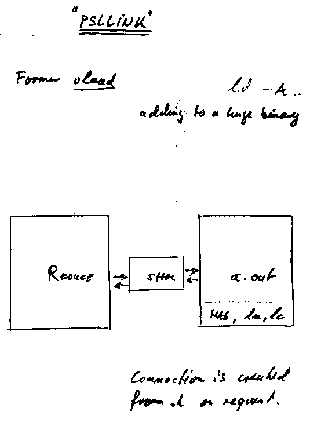 "PSLLINK"
Former oload
ld -A ..
adding to a huge binary
REDUCE
SHM
a.out
NAG, lm, lc
Connection is created
from on request.